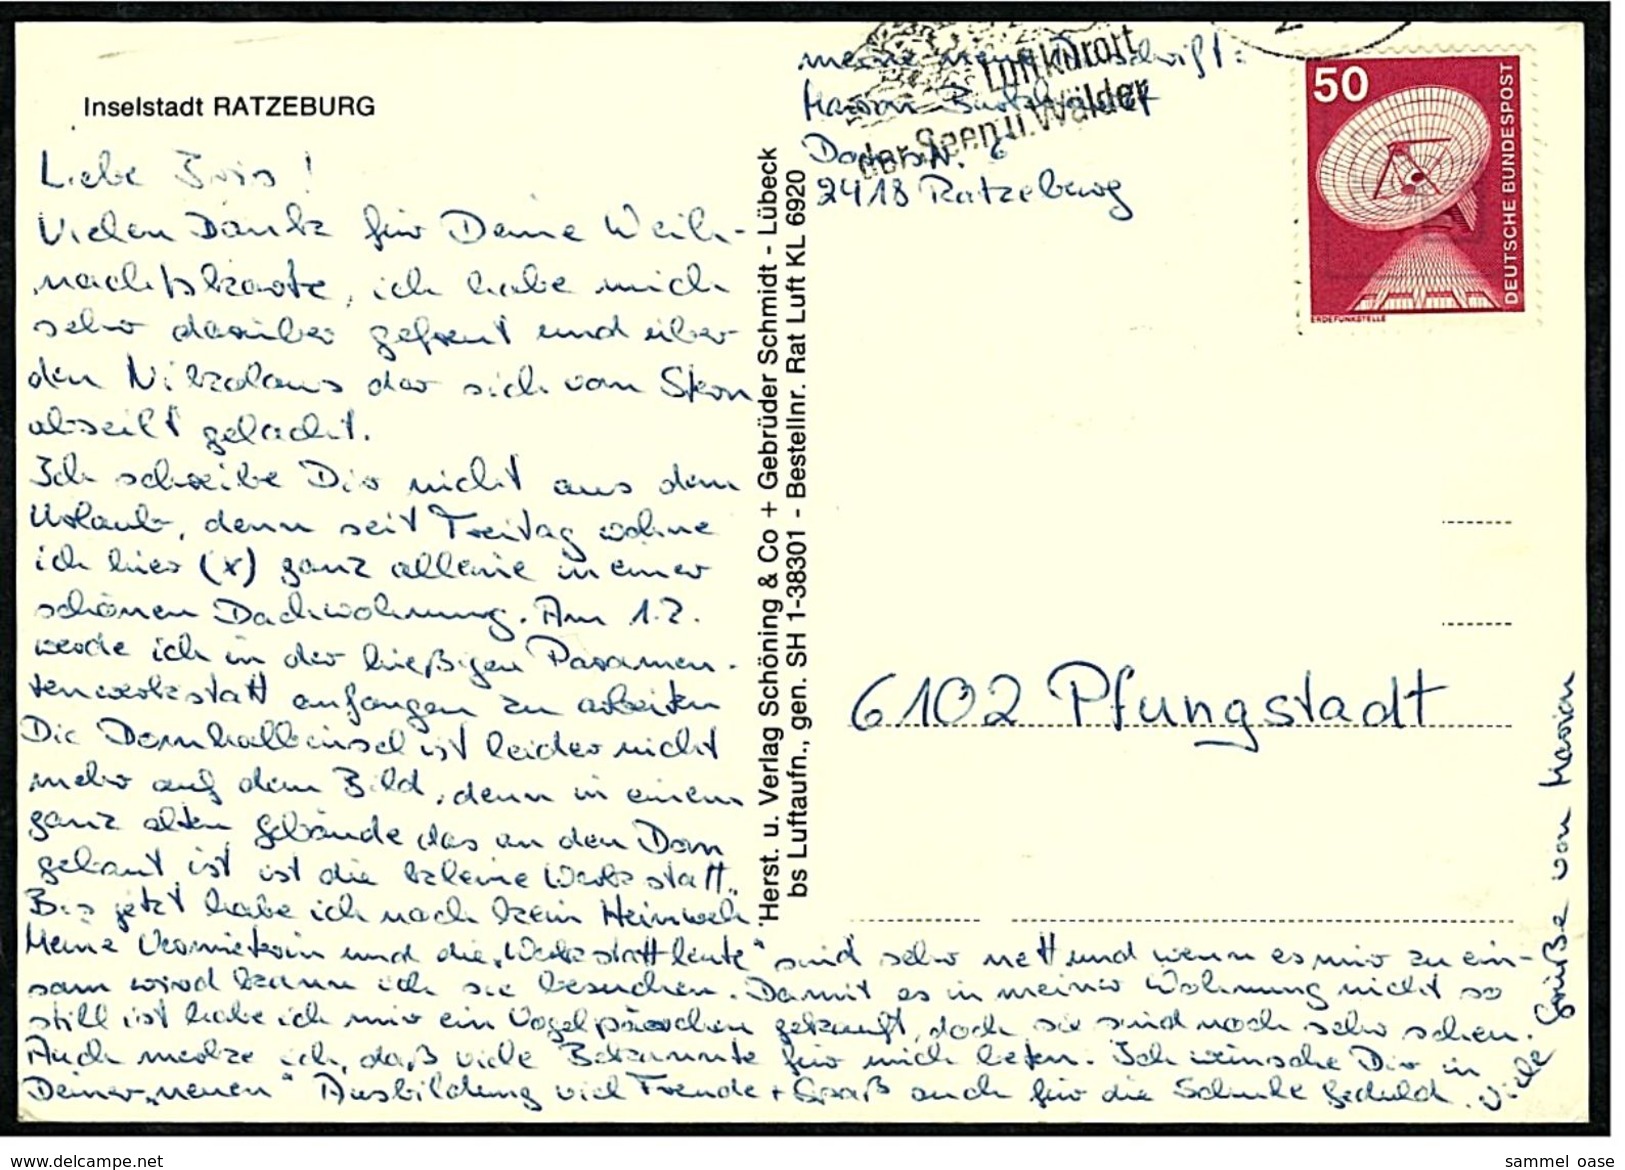 Inselstadt RATZEBURG
Liebe Iris!
Vielen Dank für Deine Weih-
nachtskarte, ich habe mich
sehr darüber gefreut und über
den Nikolaus der sich vom Stern
abseilt gelacht.
Ich schreibe Dir nicht aus dem
Urlaub, denn seit Freitag wohne
ich hier (x) ganz alleine in einer
schönen Dachwohnung. Am 1.2.
werde ich in der hießigen Paramen-
tenwerkstatt anfangen zu arbeiten
Die Domhalbinsel ist leider nicht
mehr auf dem Bild, denn in einem
ganz alten Gebäude das an den Dom
gebaut ist ist die kleine Werkstatt.
Bis jetzt habe ich noch kein Heimweh
Meine Vermieterin und die „Werkstattleute" sind sehr nett und wenn es mir zu ein-
sam wird kann ich sie besuchen. Damit es in meiner Wohnung nicht so
still ist habe ich mir ein Vogelpärchen gekauft, doch sie sind noch sehr scheu.
Auch merke ich, daß viele Bekannte für mich beten. Ich wünsche Dir in
Deiner „neuen" Ausbildung viel Freude + Spaß auch für die Schule Geduld. Viele
Grüße von Marion
Herst. u. Verlag Schöning & Co + Gebrüder Schmidt - Lübeck
bs Luftaufn., gen. SH 1-38301 - Bestellnr. Rat Luft KL 6920
meine neue Anschrift:
Marion
2418 Ratzeburg
Luftkurort
der Seen u. Wälder
50
DEUTSCHE BUNDESPOST
ERDEFUNKSTELLE
6102 Pfungstadt
www.delcampe.net
sammel_oase